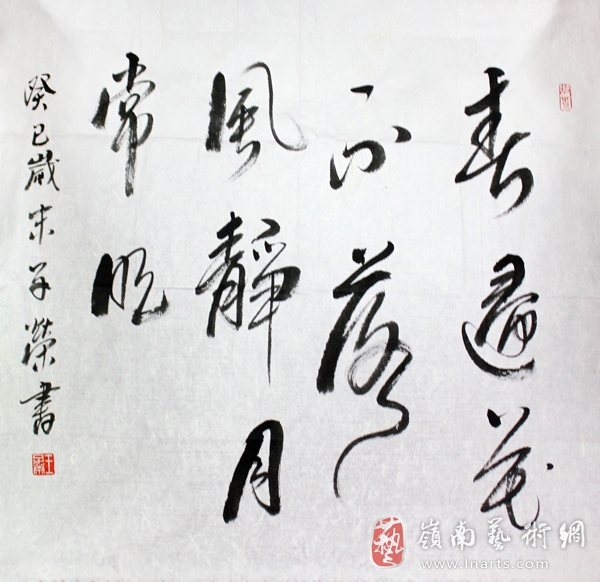 春歸花
不落
風靜月
常明
癸巳歲末榮書
嶺南藝術網
www.lnarts.com